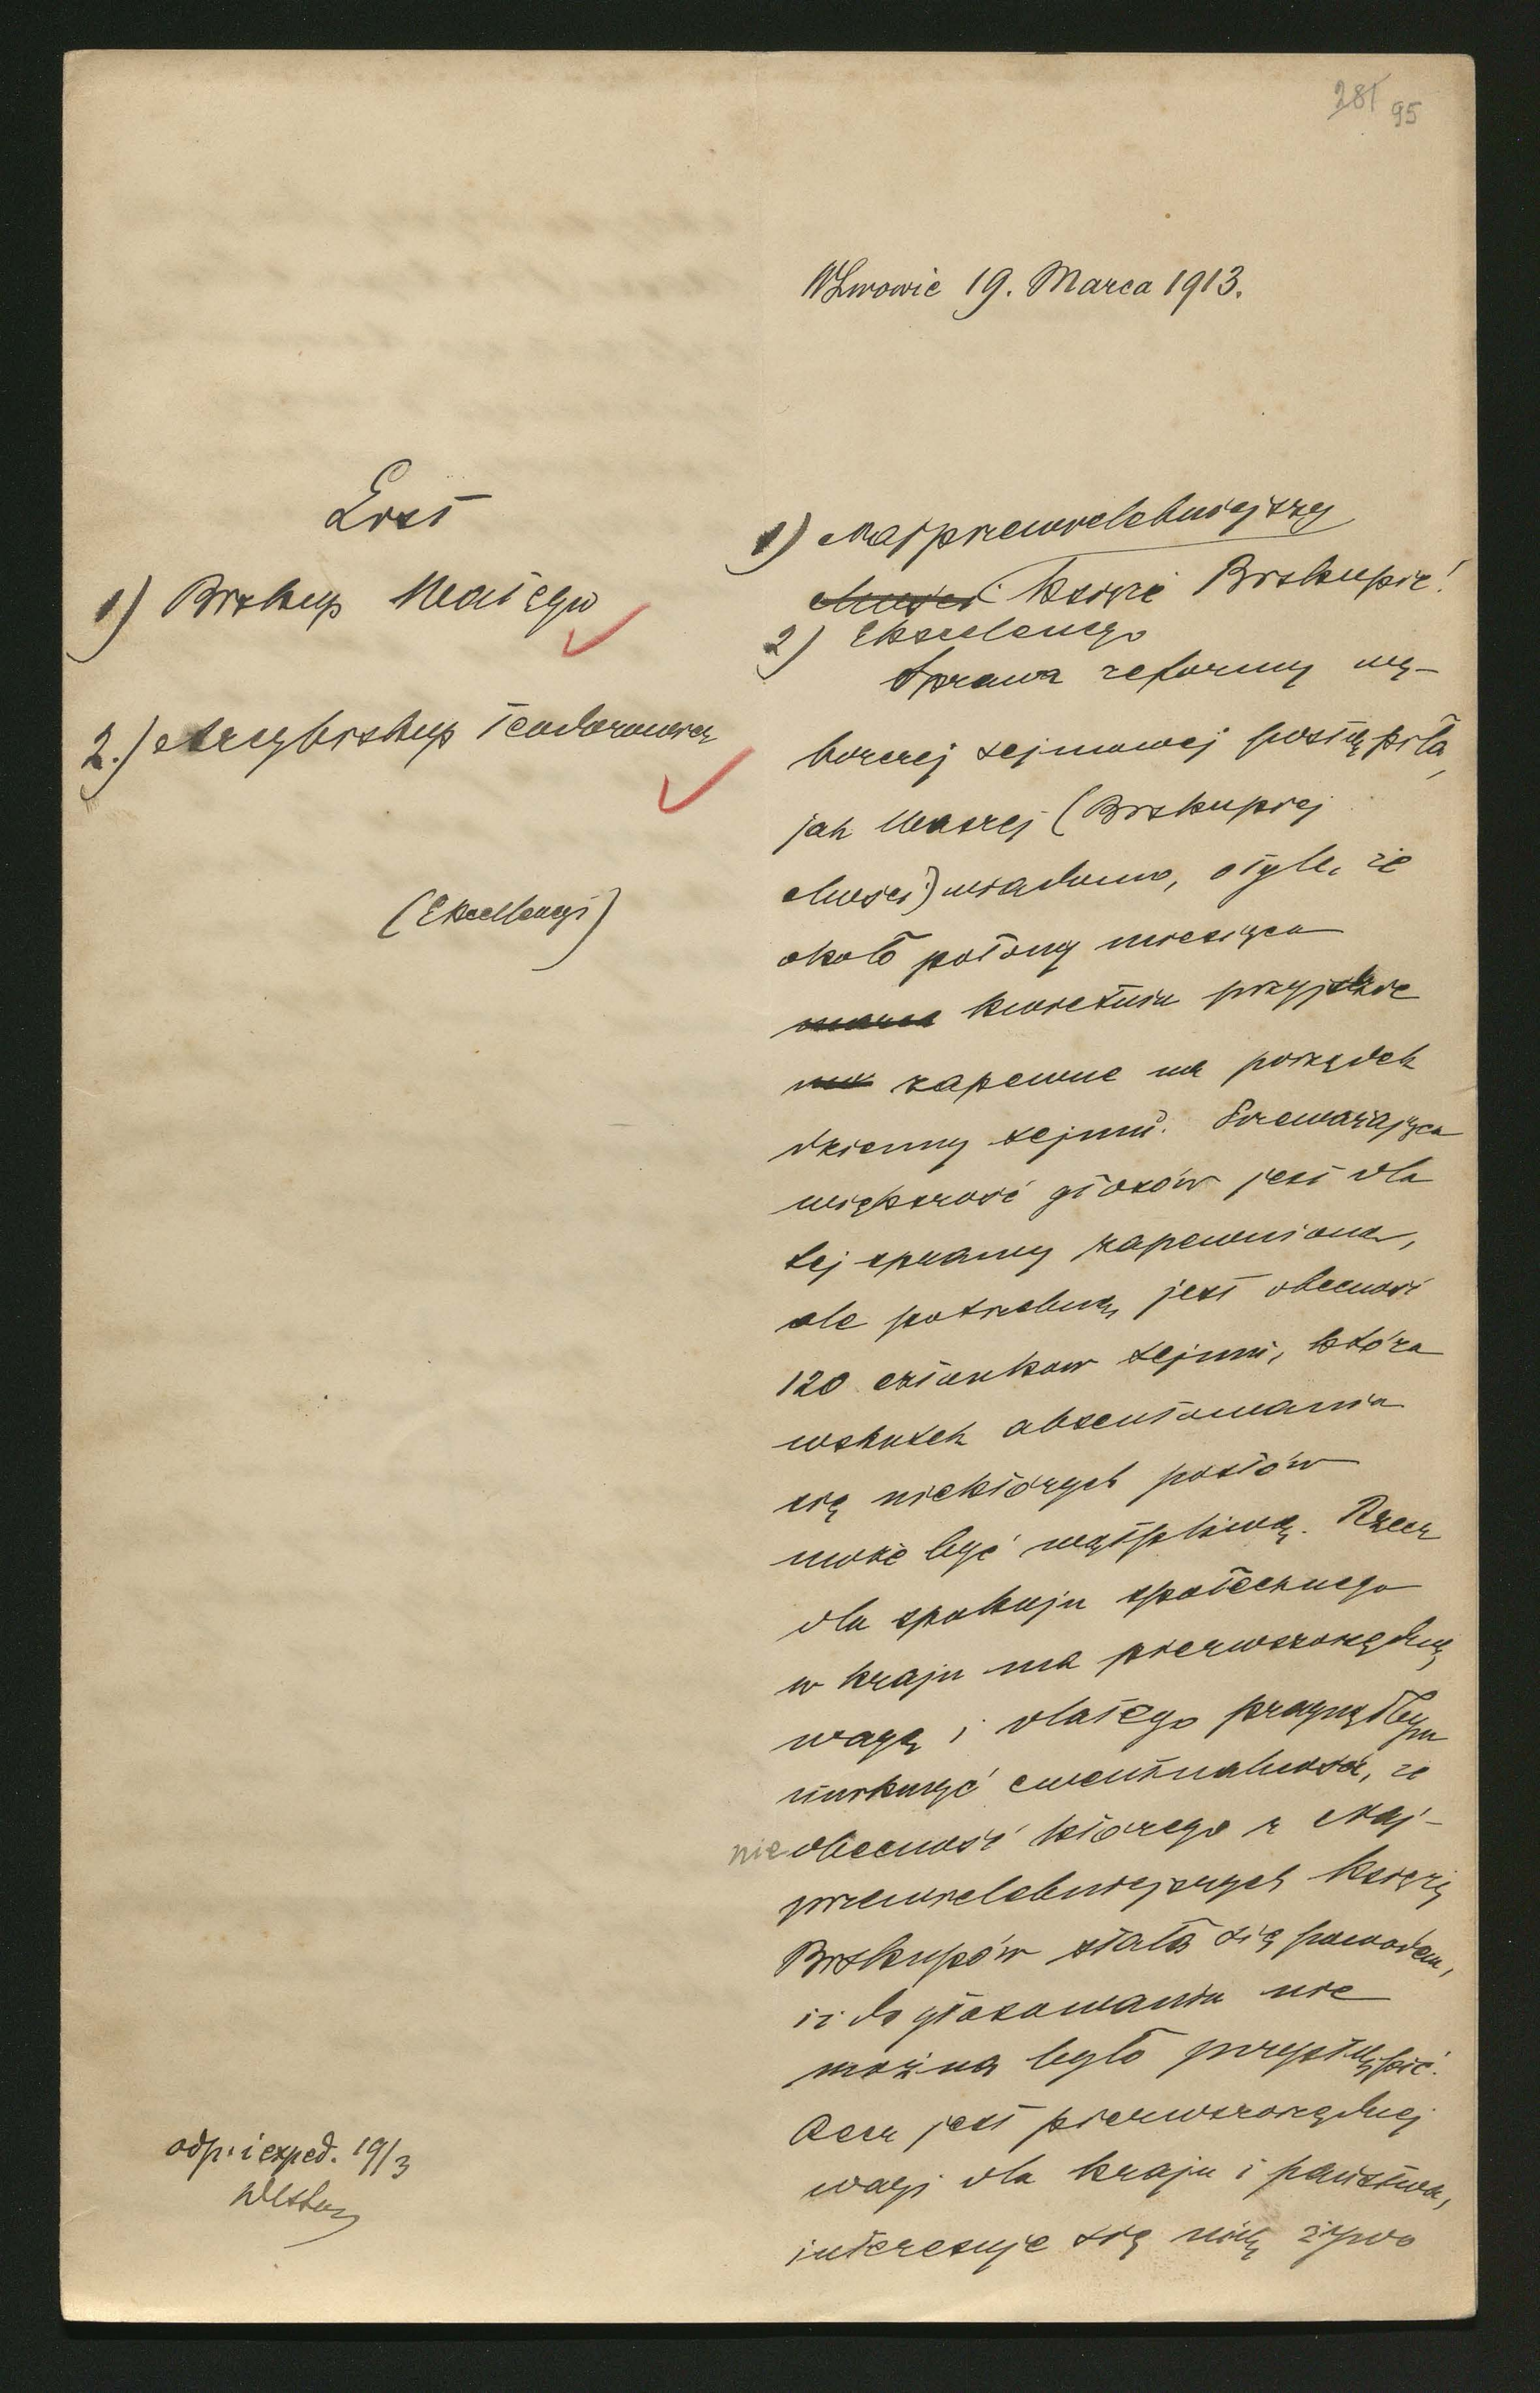 281 95
WLwowie 19. Marca 1913.
List
1) Biskup Wałęga
2.) Arcybiskup Teodorowicz
(Ekscellencyi)
1) Najprzewielebniejszy
Księże Biskupie!
2) Ekscelencyo
Sprawa reformy wy-
borczej sejmowej postąpiła,
jak Waszej (Biskupiej
Mości) wiadomo, o tyle, że
około połowy miesiąca
marca kwietnia przyjdzie
na zapewne na porządek
dzienny sejmu. Przeważająca
większość głosów jest dla
tej sprawy zapewniona,
ale potrzebną jest obecność
120 członków sejmu, która
wskutek absentowania
się niektórych posłów
może być wątpliwą. Rzecz
dla spokoju społecznego
w kraju ma pierwszorzędną
wagę i dlatego pragnąłbym
uniknąć ewentualności, że
nieobecność którego z Naj-
przewielebniejszych Księży
Biskupów stała się powodem,
iż do głosowania nie
można było przystąpić.
Rzecz jest pierwszorzędnej
wagi dla kraju i państwa,
interesuje się nią żywo
odp. i exped. 19/3